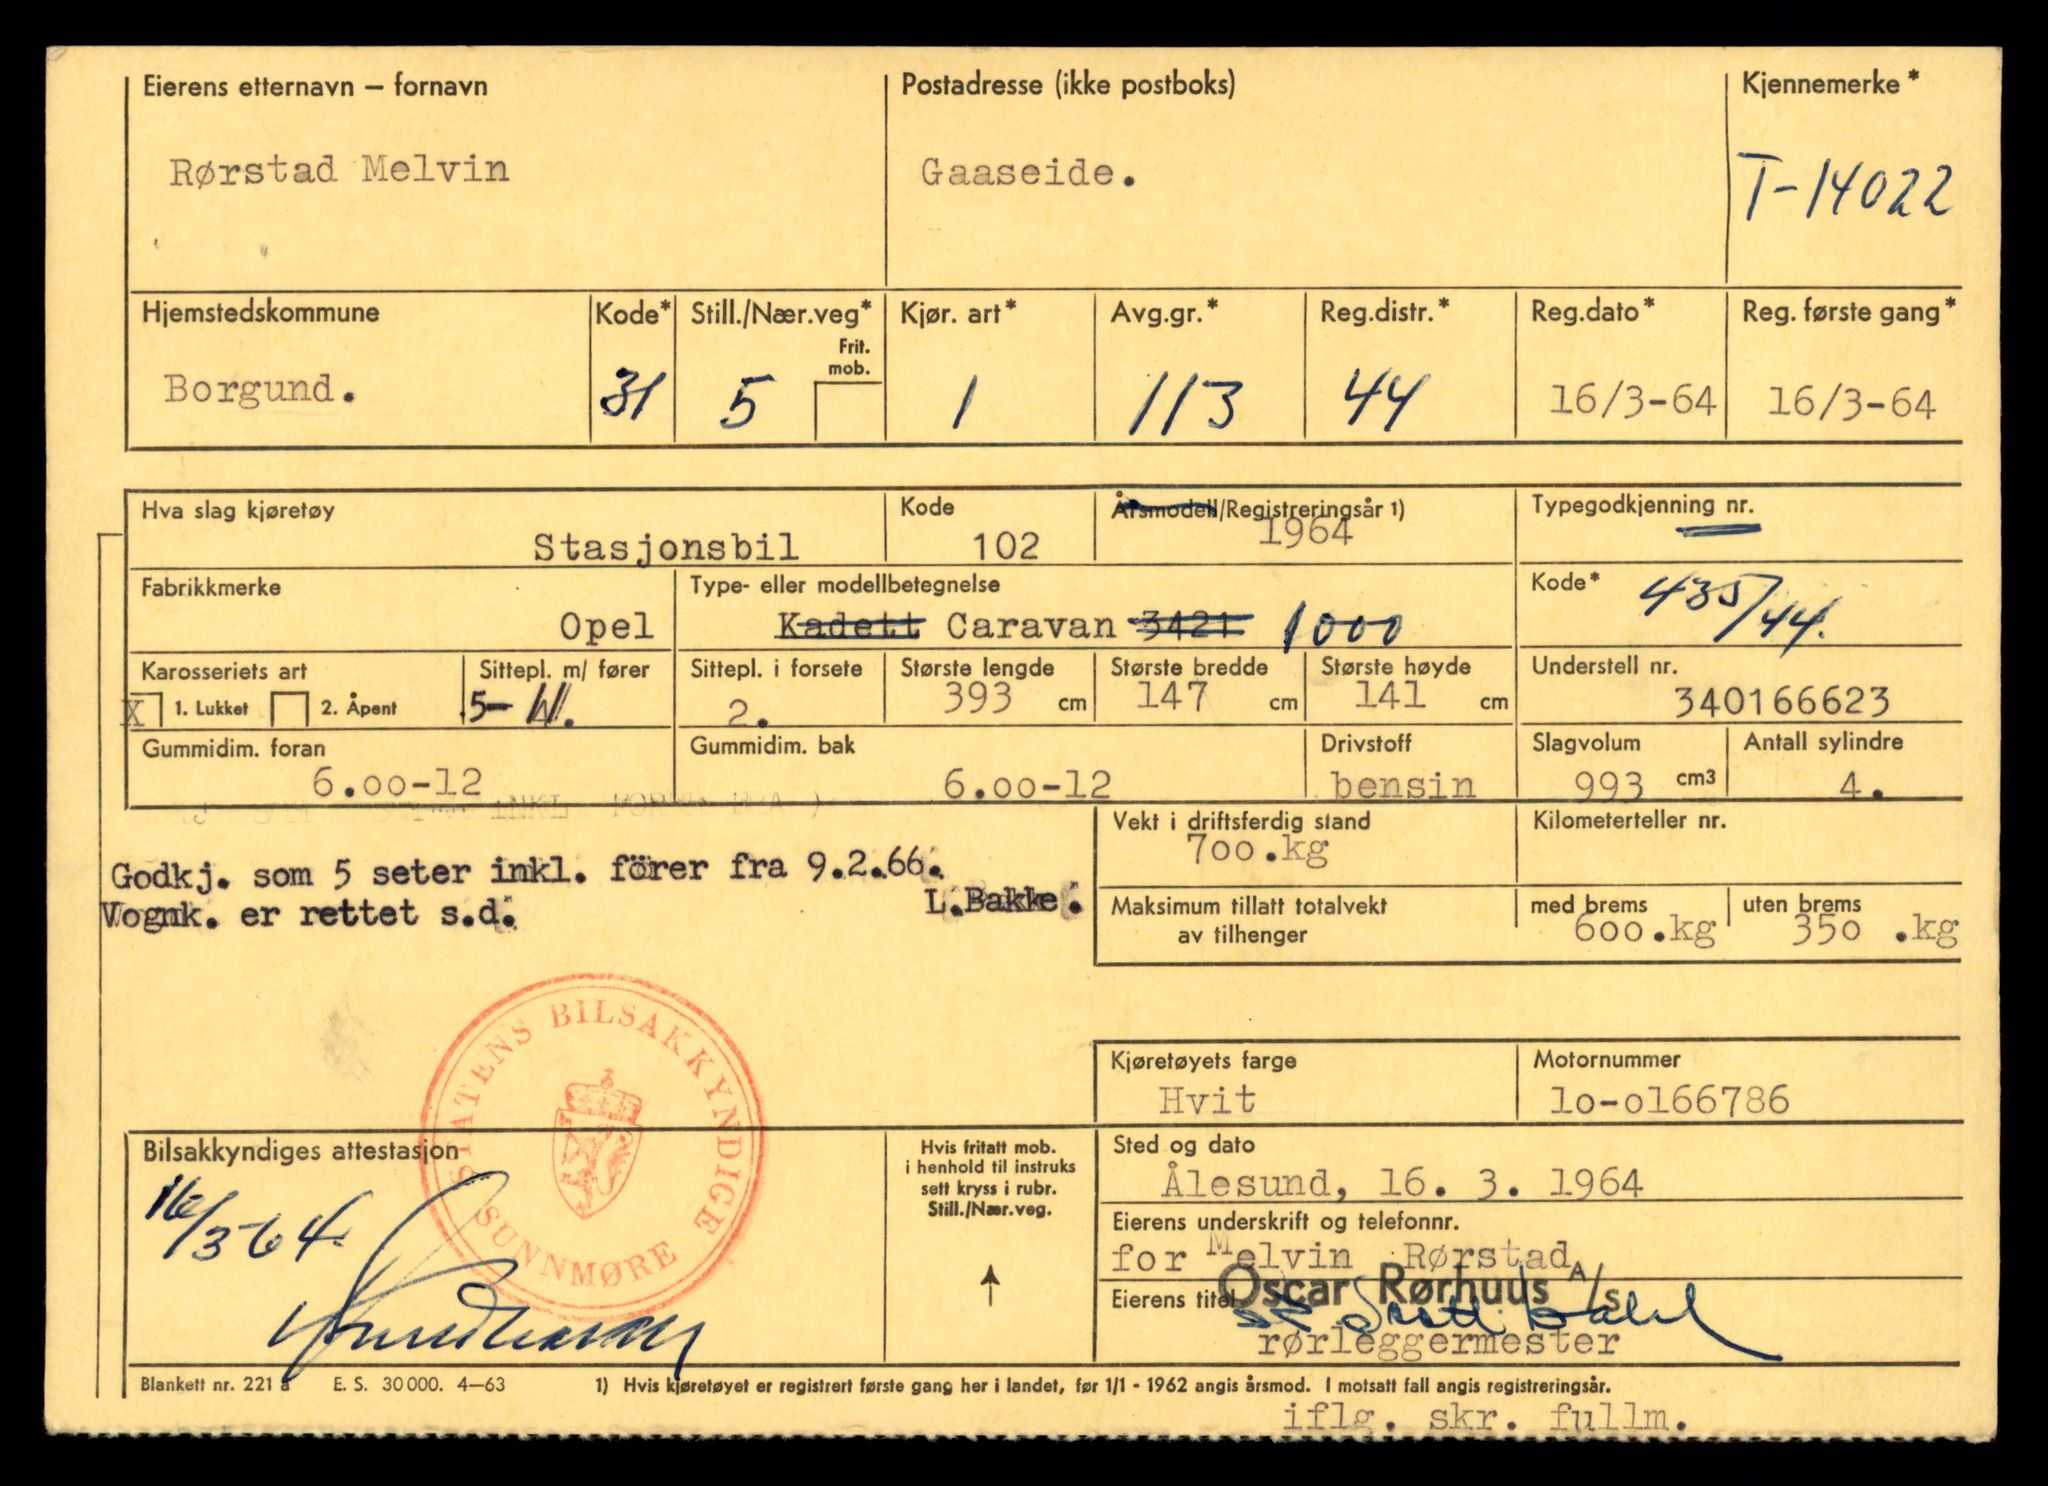 Eierens etternavn – fornavn
Postadresse (ikke postboks)
Kjennemerke*
Rørstad Melvin
Gaaseide.
T-14022
Hjemstedskommune
Kode*
Still./Nær.veg*
Frit. mob.
Kjør. art*
Avg.gr.*
Reg.distr.*
Reg.dato*
Reg. første gang*
Borgund.
31
5
1
113
44
16/3-64
16/3-64
Hva slag kjøretøy
Kode
Årsmodell/Registreringsår 1)
Typegodkjenning nr.
Stasjonsbil
102
1964
Fabrikkmerke
Type- eller modellbetegnelse
Kode*
435/44.
Opel
Kadett Caravan 3421 1000
Karosseriets art
Sittepl. m/ fører
Sittepl. i forsete
Største lengde
Største bredde
Største høyde
Understell nr.
X 1. Lukket
2. Åpent
5-
2.
393 cm
147 cm
141 cm
340166623
Gummidim. foran
Gummidim. bak
Drivstoff
Slagvolum
Antall sylindre
6.00-12
6.00-12
bensin
993 cm3
4.
Vekt i driftsferdig stand
Kilometerteller nr.
700.kg
Godkj. som 5 seter inkl. förer fra 9.2.66.
Vognk. er rettet s.d.
L.Bakke.
Maksimum tillatt totalvekt
av tilhenger
med brems
uten brems
600.kg
350 .kg
STATENS BILSAKKYNDIGE
SUNNMØRE
Kjøretøyets farge
Motornummer
Hvit
lo-ol66786
Bilsakkyndiges attestasjon
16/3-64.
Hvis fritatt mob.
i henhold til instruks
sett kryss i rubr.
Still./Nær.veg.
Sted og dato
Ålesund, 16. 3. 1964
Eierens underskrift og telefonnr.
for Melvin Rørstad
Oscar Rørhuus A/s
Eierens titel
rørleggermester
Blankett nr. 221 a E. S. 30 000. 4–63
1) Hvis kjøretøyet er registrert første gang her i landet, før 1/1 - 1962 angis årsmod. I motsatt fall angis registreringsår.
iflg. skr. fullm.